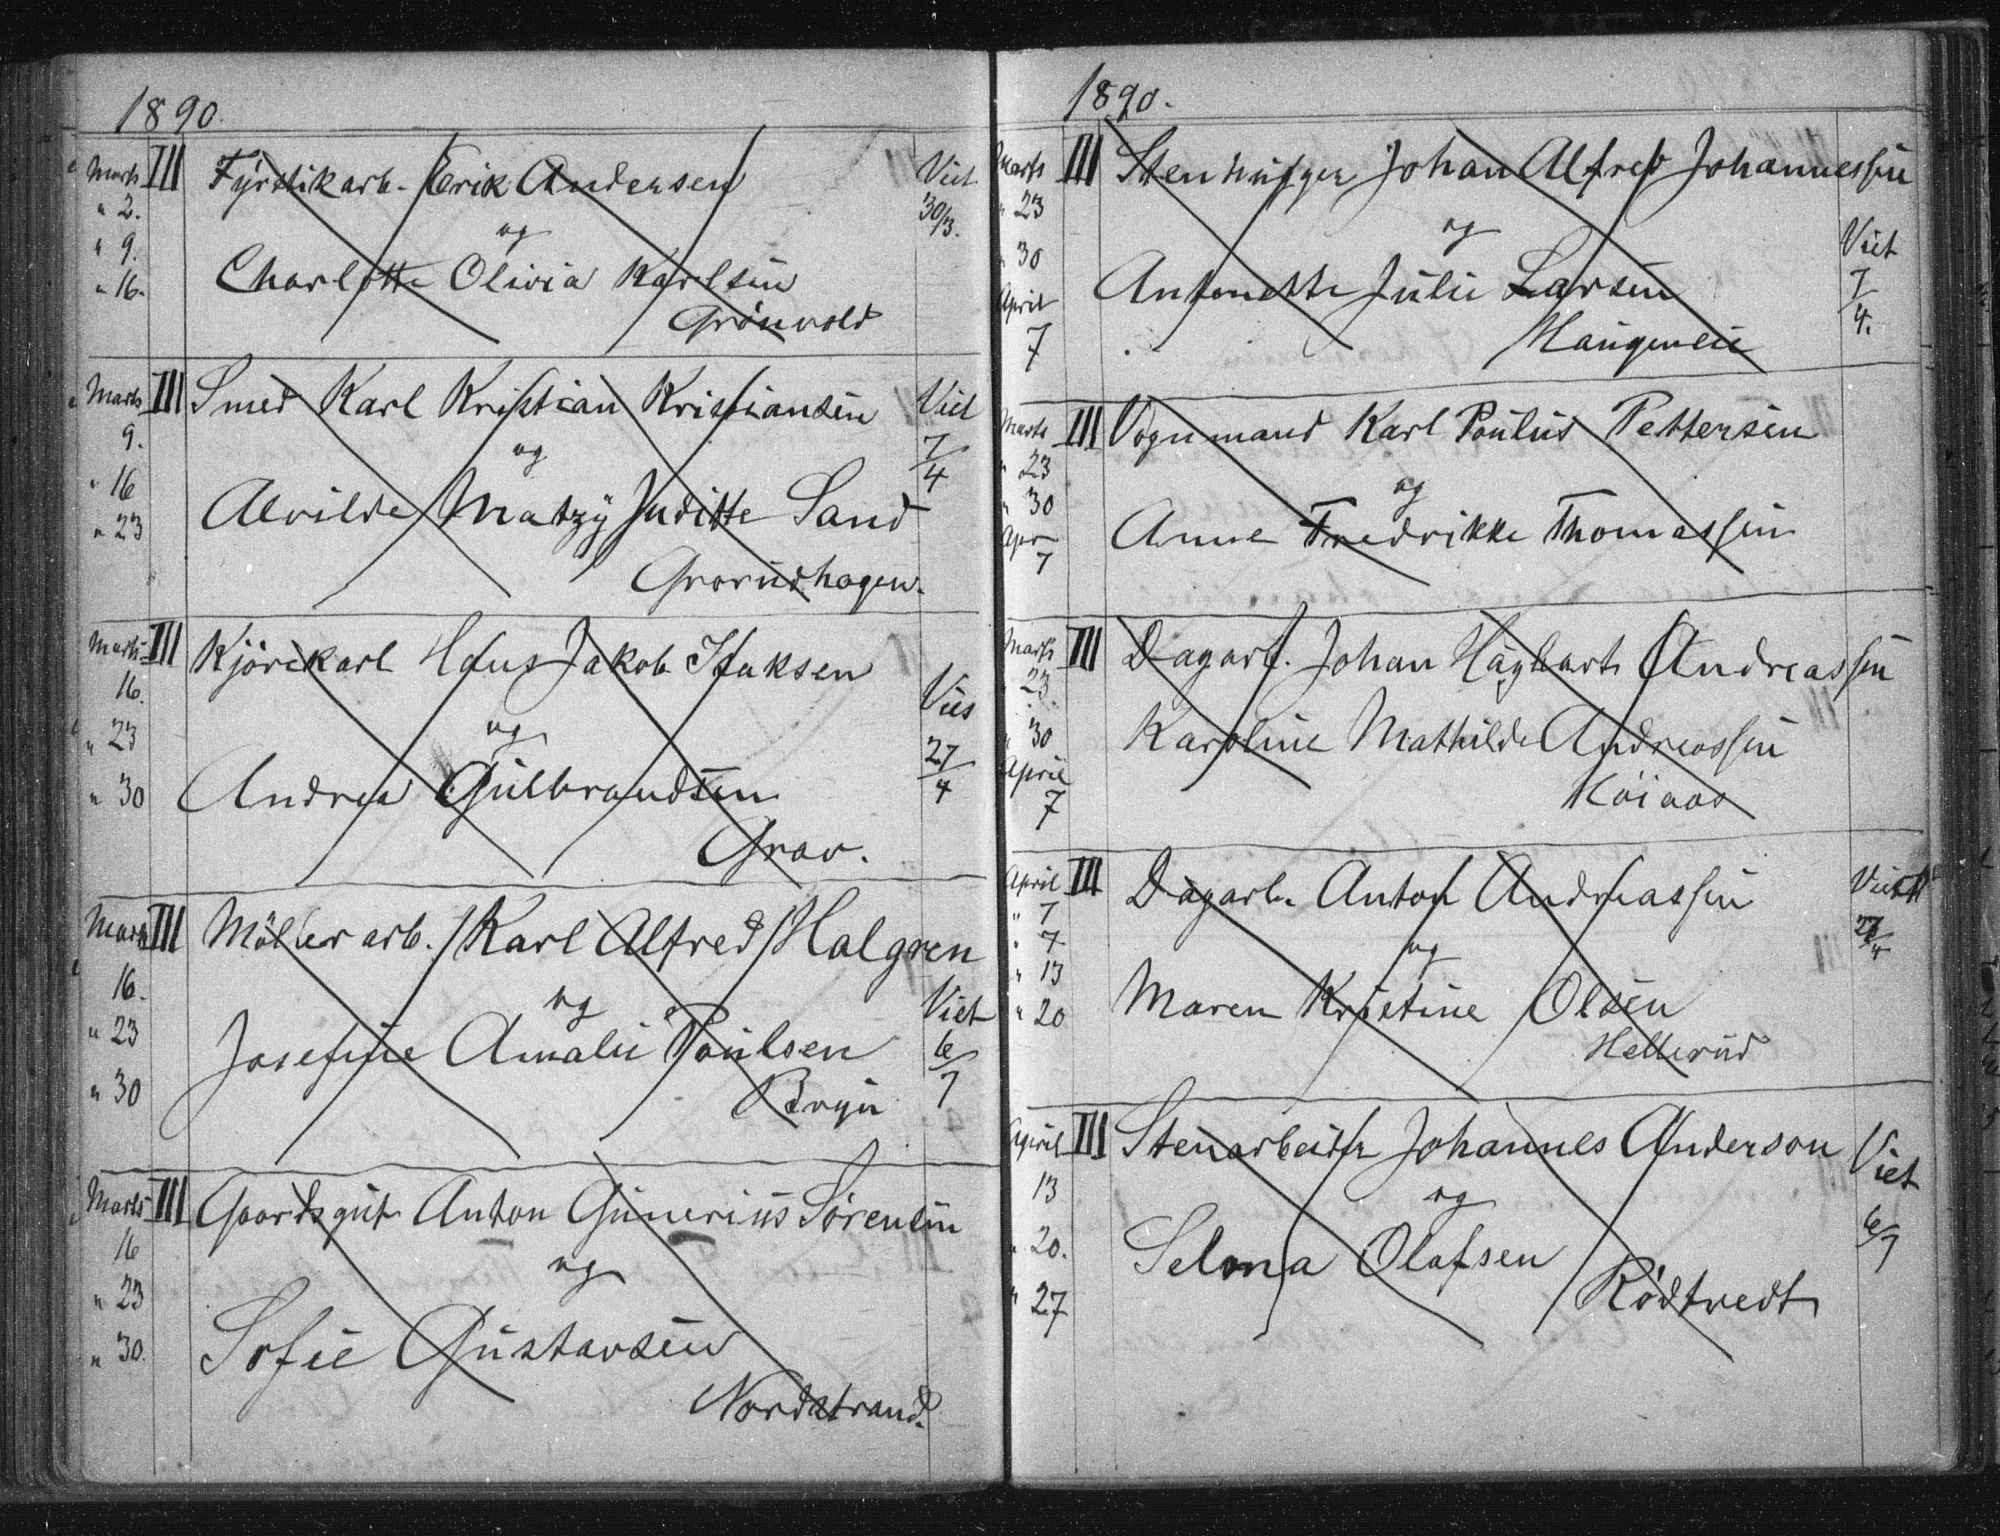 1890.
Marts III Fyrstikarb. Erik Andersen Viet
" 2. og 30/3.
" 9. Charlotte Olivia Karlsen
" 16. Grönvold
Marts III Smed Karl Kristian Kristiansen Viet
9. og 7/4
" 16 Alvilde Matzy Juditte Sand
" 23 Grorudhagen.
Marts III Kjörekarl Hans Jakob Isaksen Vies
16. og 27/4
" 23 Andrea Gulbrandsen
" 30 Grav.
Marts III Möllerarb. Karl Alfred Halgren
16. og Viet
" 23 Josefine Amalie Paulsen 6/7
" 30 Bryn
Marts III Gaardsgut Anton Gunerius Sörensen
16 og
" 23 Sofie Gustavsen
" 30. Nordstrand.
1890.
Marts III Stenhugger Johan Alfred Johannessen
" 23 og Viet
" 30 Antonette Julie Larsen 7/4.
April 7 Haugenlie
Marts III Vognmand Karl Paulus Pettersen
" 23 og
" 30 Anne Fredrikke Thomassen
Apr 7
Marts III Dagarb. Johan Hagbart Andreassen
23.
" 30 Karoline Mathilde Andreassen
April 7 Höiaas
April III Dagarb. Anton Andreassen Viet
" 7
" 7 og 27/4
" 13 Maren Kristine Olsen
" 20 Hellerud
April III Stenarbeider Johannes Anderson Viet
13 og 6/7
" 20. Selma Olafsen
" 27 Rødtvedt